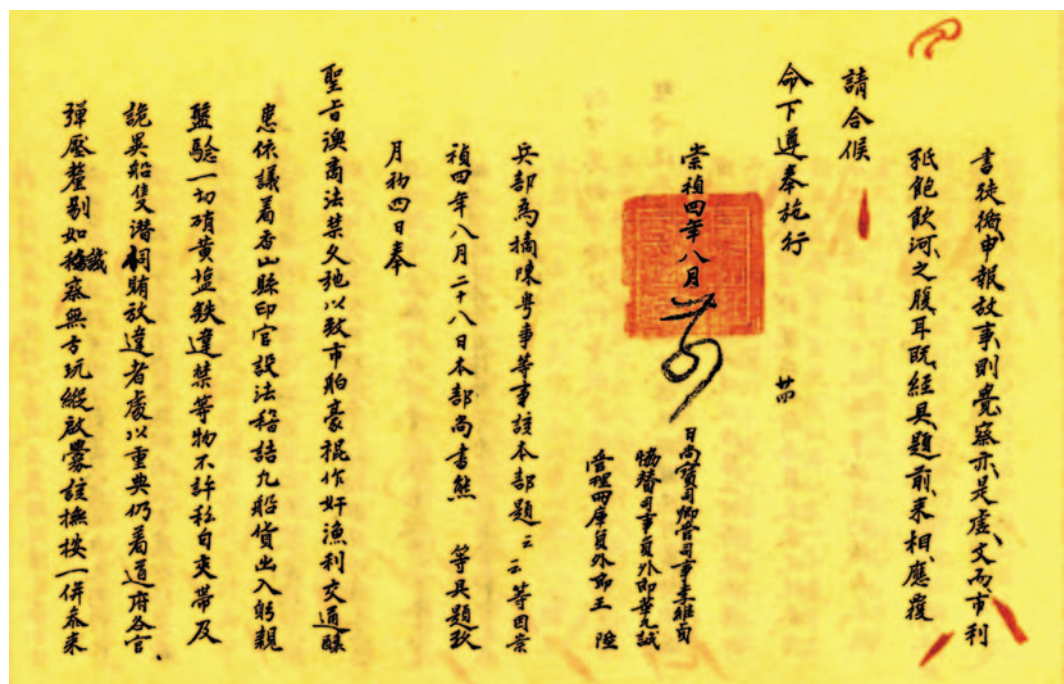 書徒徇申報故事則覺察亦是虛文而市利
秖飽飲河之腹耳既經具題前來相應覆
請合候
命下遵奉施行
崇禎四年八月 廿四
日尚寶司卿管司事李繼貞
協替司事員外郎華允誠
管理冊庫員外郎王陞
兵部為摘陳粵事等事該本部題云云等因崇
禎四年八月二十八日本部尚書熊 等具題玖
月初四日奉
聖旨澳商法禁久弛以致市舶豪棍作奸漁利交通釀
患依議着香山縣印官設法稽詰凡船貨出入躬親
盤驗一切硝黃塩鉄違禁等物不許私自夾帶及
詭異船隻潛伺賄放違者處以重典仍着道府各官
彈壓釐剔如譏察無方玩縱啟釁該撫按一併叅來